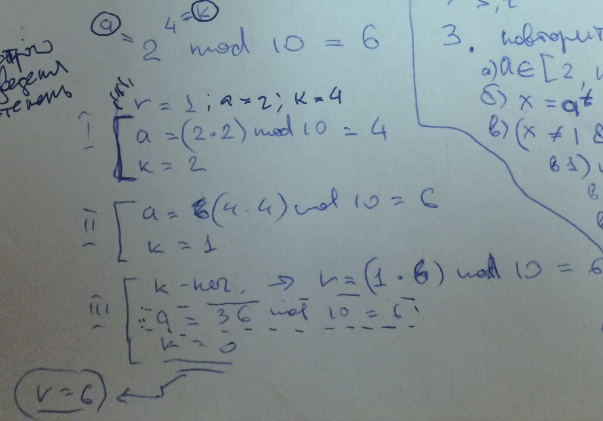 a = 2 4 = k mod 10 = 6
r = 1; a = 2; k = 4
I
a = (2·2) mod 10 = 4
k = 2
II
a = (4·4) mod 10 = 6
k = 1
III
k - неч. → r = (1·6) mod 10 = 6
a = 36 mod 10 = 6
k = 0
r = 6
3. повторит
а) a ∈ [2,
б) x = a^t
в) (x ≠ 1 &
в1)
в